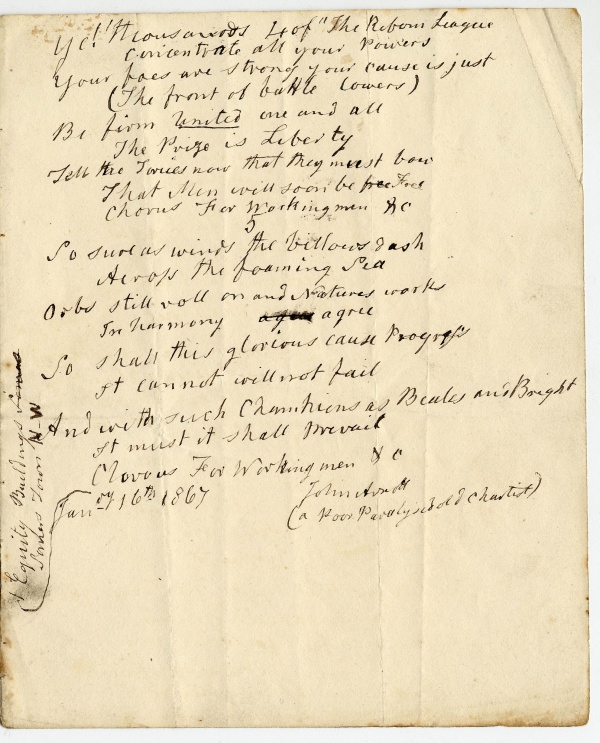 4
Ye!! Thousands of "The Reform League
Concentrate all your Powers
Your foes are strong your cause is just
(The front of battle Lowers)
Be firm United one and all
The Prize is Liberty
Tell the Tories now that they must bow
That Men will soon be free Free
Chorus For Workingmen &c
5
So sure as winds the billows dash
Across the foaming Sea
Orbs still roll on and Natures works
In harmony agree
So shall this glorious cause Progress
It cannot will not fail
And with such Champions as Beales and Bright
It must it shall Prevail
Chorous For Workingmen &c
Janry 16th 1867
John
(a Poor Paralysed old Chartist)
Equity Buildings
Somers Town N-W